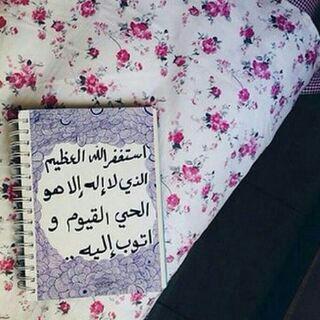 استغفر الله العظيم
الذي لا إله إلا هو
الحي القيوم و
اتوب إليه..